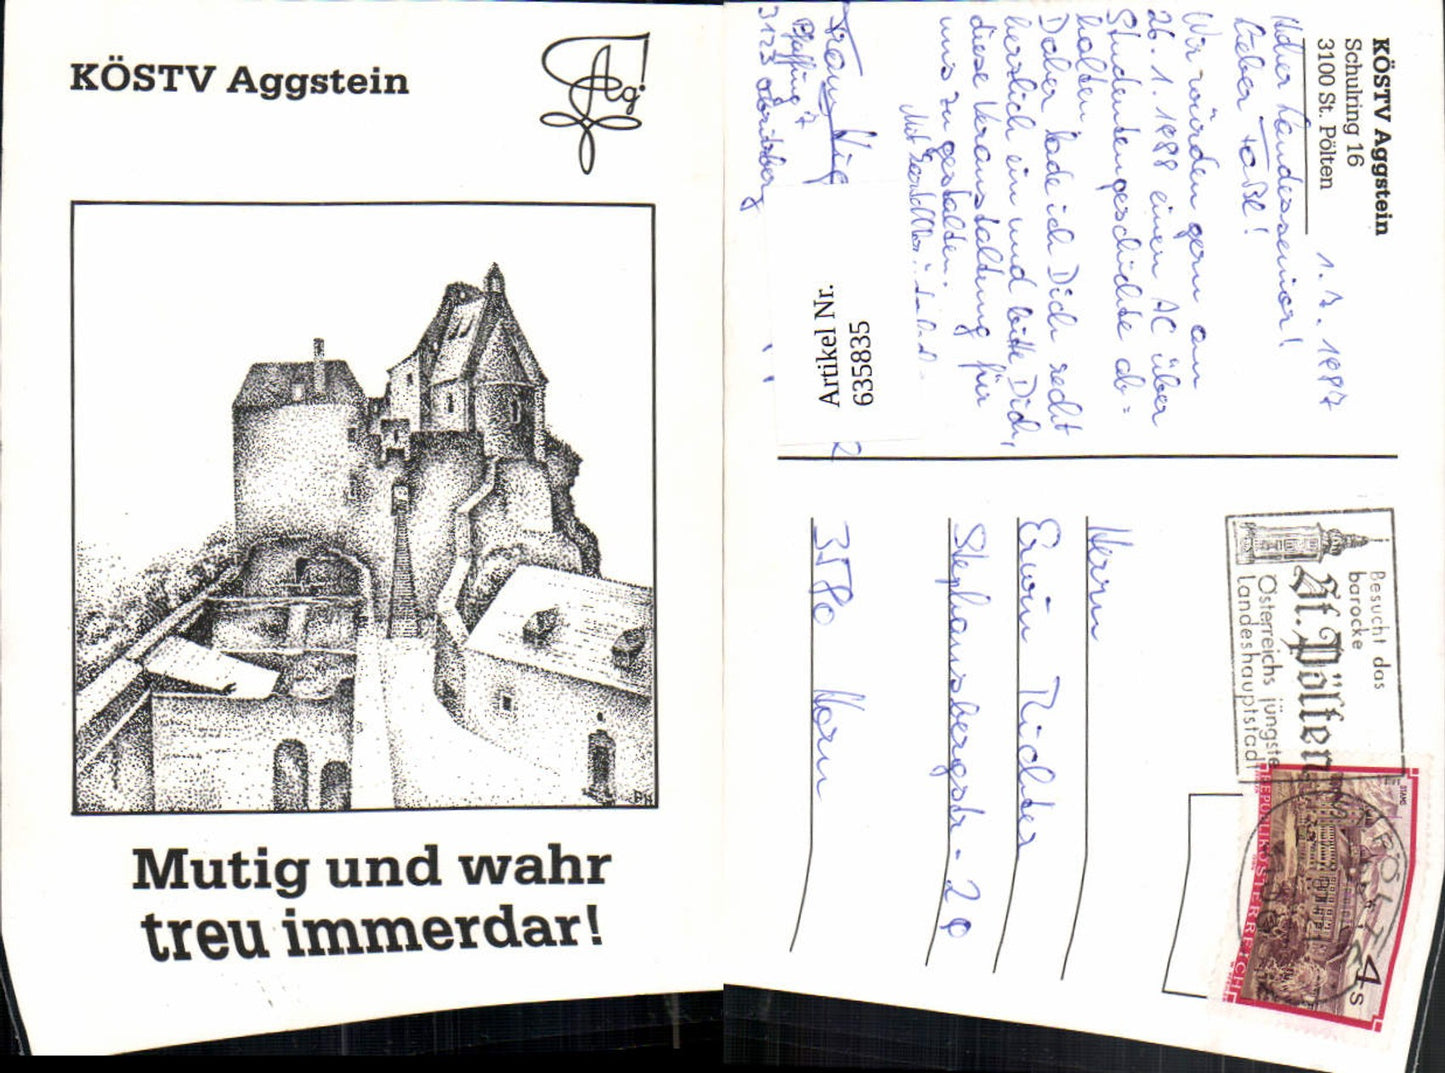 KÖSTV Aggstein
Ag!
Mutig und wahr
treu immerdar!
BH
KÖSTV Aggstein
Schulring 16
3100 St. Pölten
1. 7. 1987
Lieber
Wir würden gern am
26. 1. 1988 einen AC über
Studentengeschichte ab=
halten.
Daher lade ich Dich recht
herzlich ein und bitte Dich,
diese Veranstaltung für
uns zu gestalten.
Mit
3123
Artikel Nr.
635835
Besucht das
barocke
St. Pölten
Österreichs jüngste
Landeshauptstadt
REPUBLIK ÖSTERREICH
STAMS
4 S
Herrn
Erwin Richter
Stephansbergstr.
3580 Horn